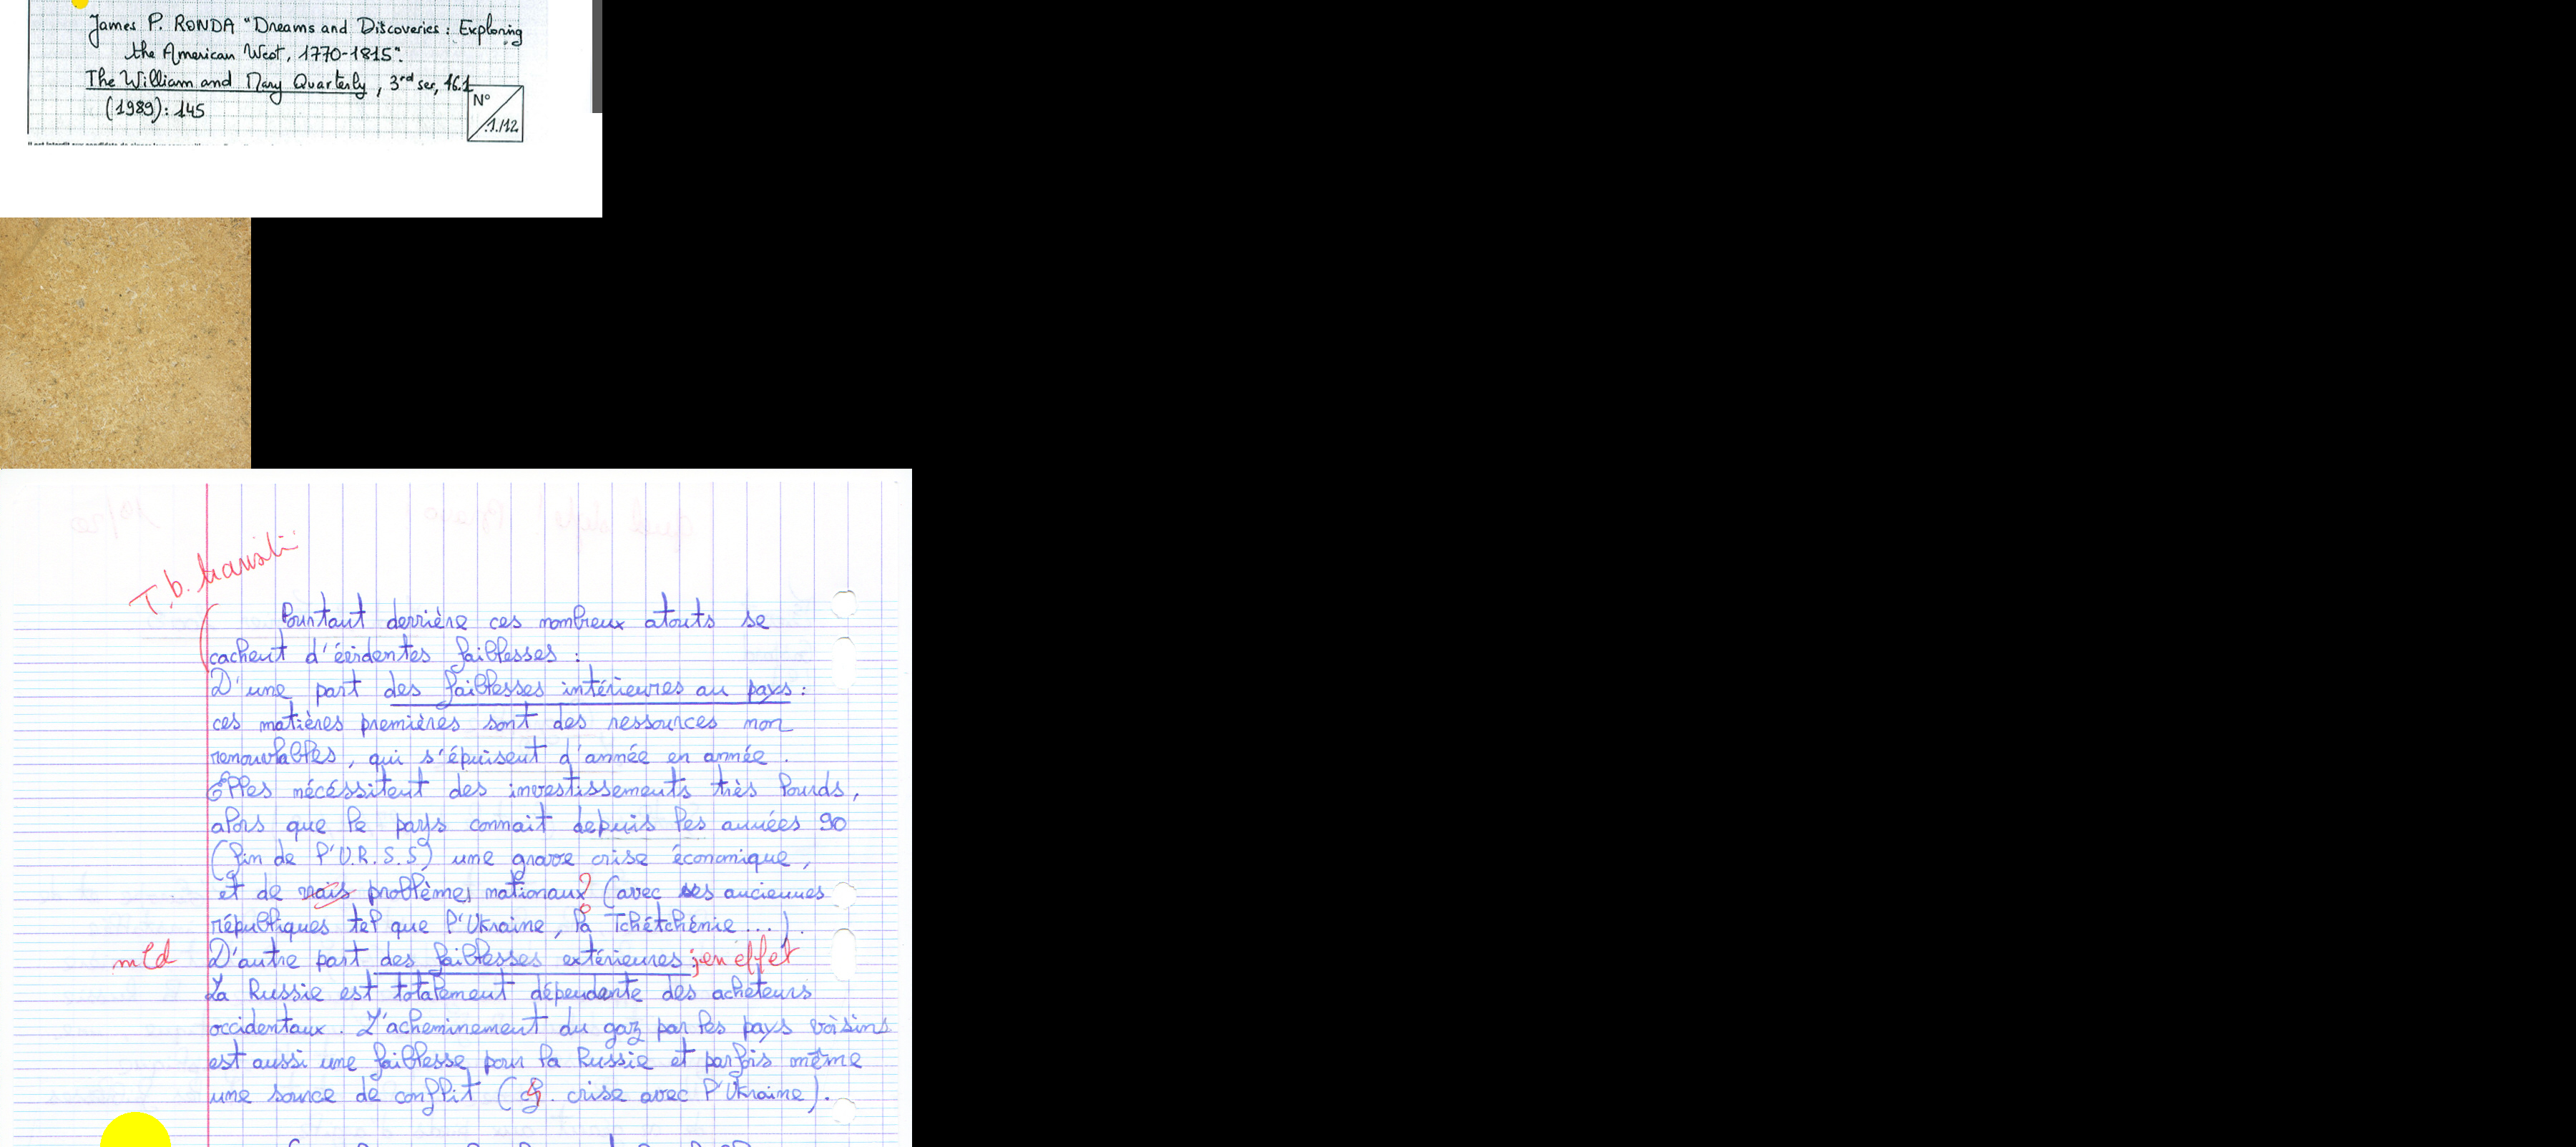 James P. RONDA "Dreams and Discoveries: Exploring
the American West, 1770-1815".
The William and Mary Quarterly, 3rd ser, 46.1
(1989): 145
N°
1./12
T.b. transiti:
Pourtant derrière ces nombreux atouts se
cachent d'évidentes faiblesses :
D'une part des faiblesses intérieures au pays :
ces matières premières sont des ressources non
renouvlables, qui s'épuisent d'année en année.
Elles nécéssitent des investissements très lourds,
alors que le pays connait depuis les années 90
(fin de l'U.R.S.S) une grave crise économique,
et de vrais problèmes nationaux? (avec ses anciennes
républiques tel que l'Ukraine, la Tchétchénie...).
mld D'autre part des faiblesses extérieures : en effet
La Russie est totalement dépendante des acheteurs
occidentaux. L'acheminement du gaz par les pays voisins
est aussi une faiblesse pour la Russie et parfois même
une source de conflit (cf. crise avec l'Ukraine).